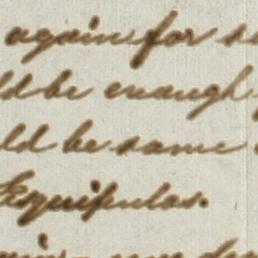 again for
ld be enough
ld be same
Esquipulas.